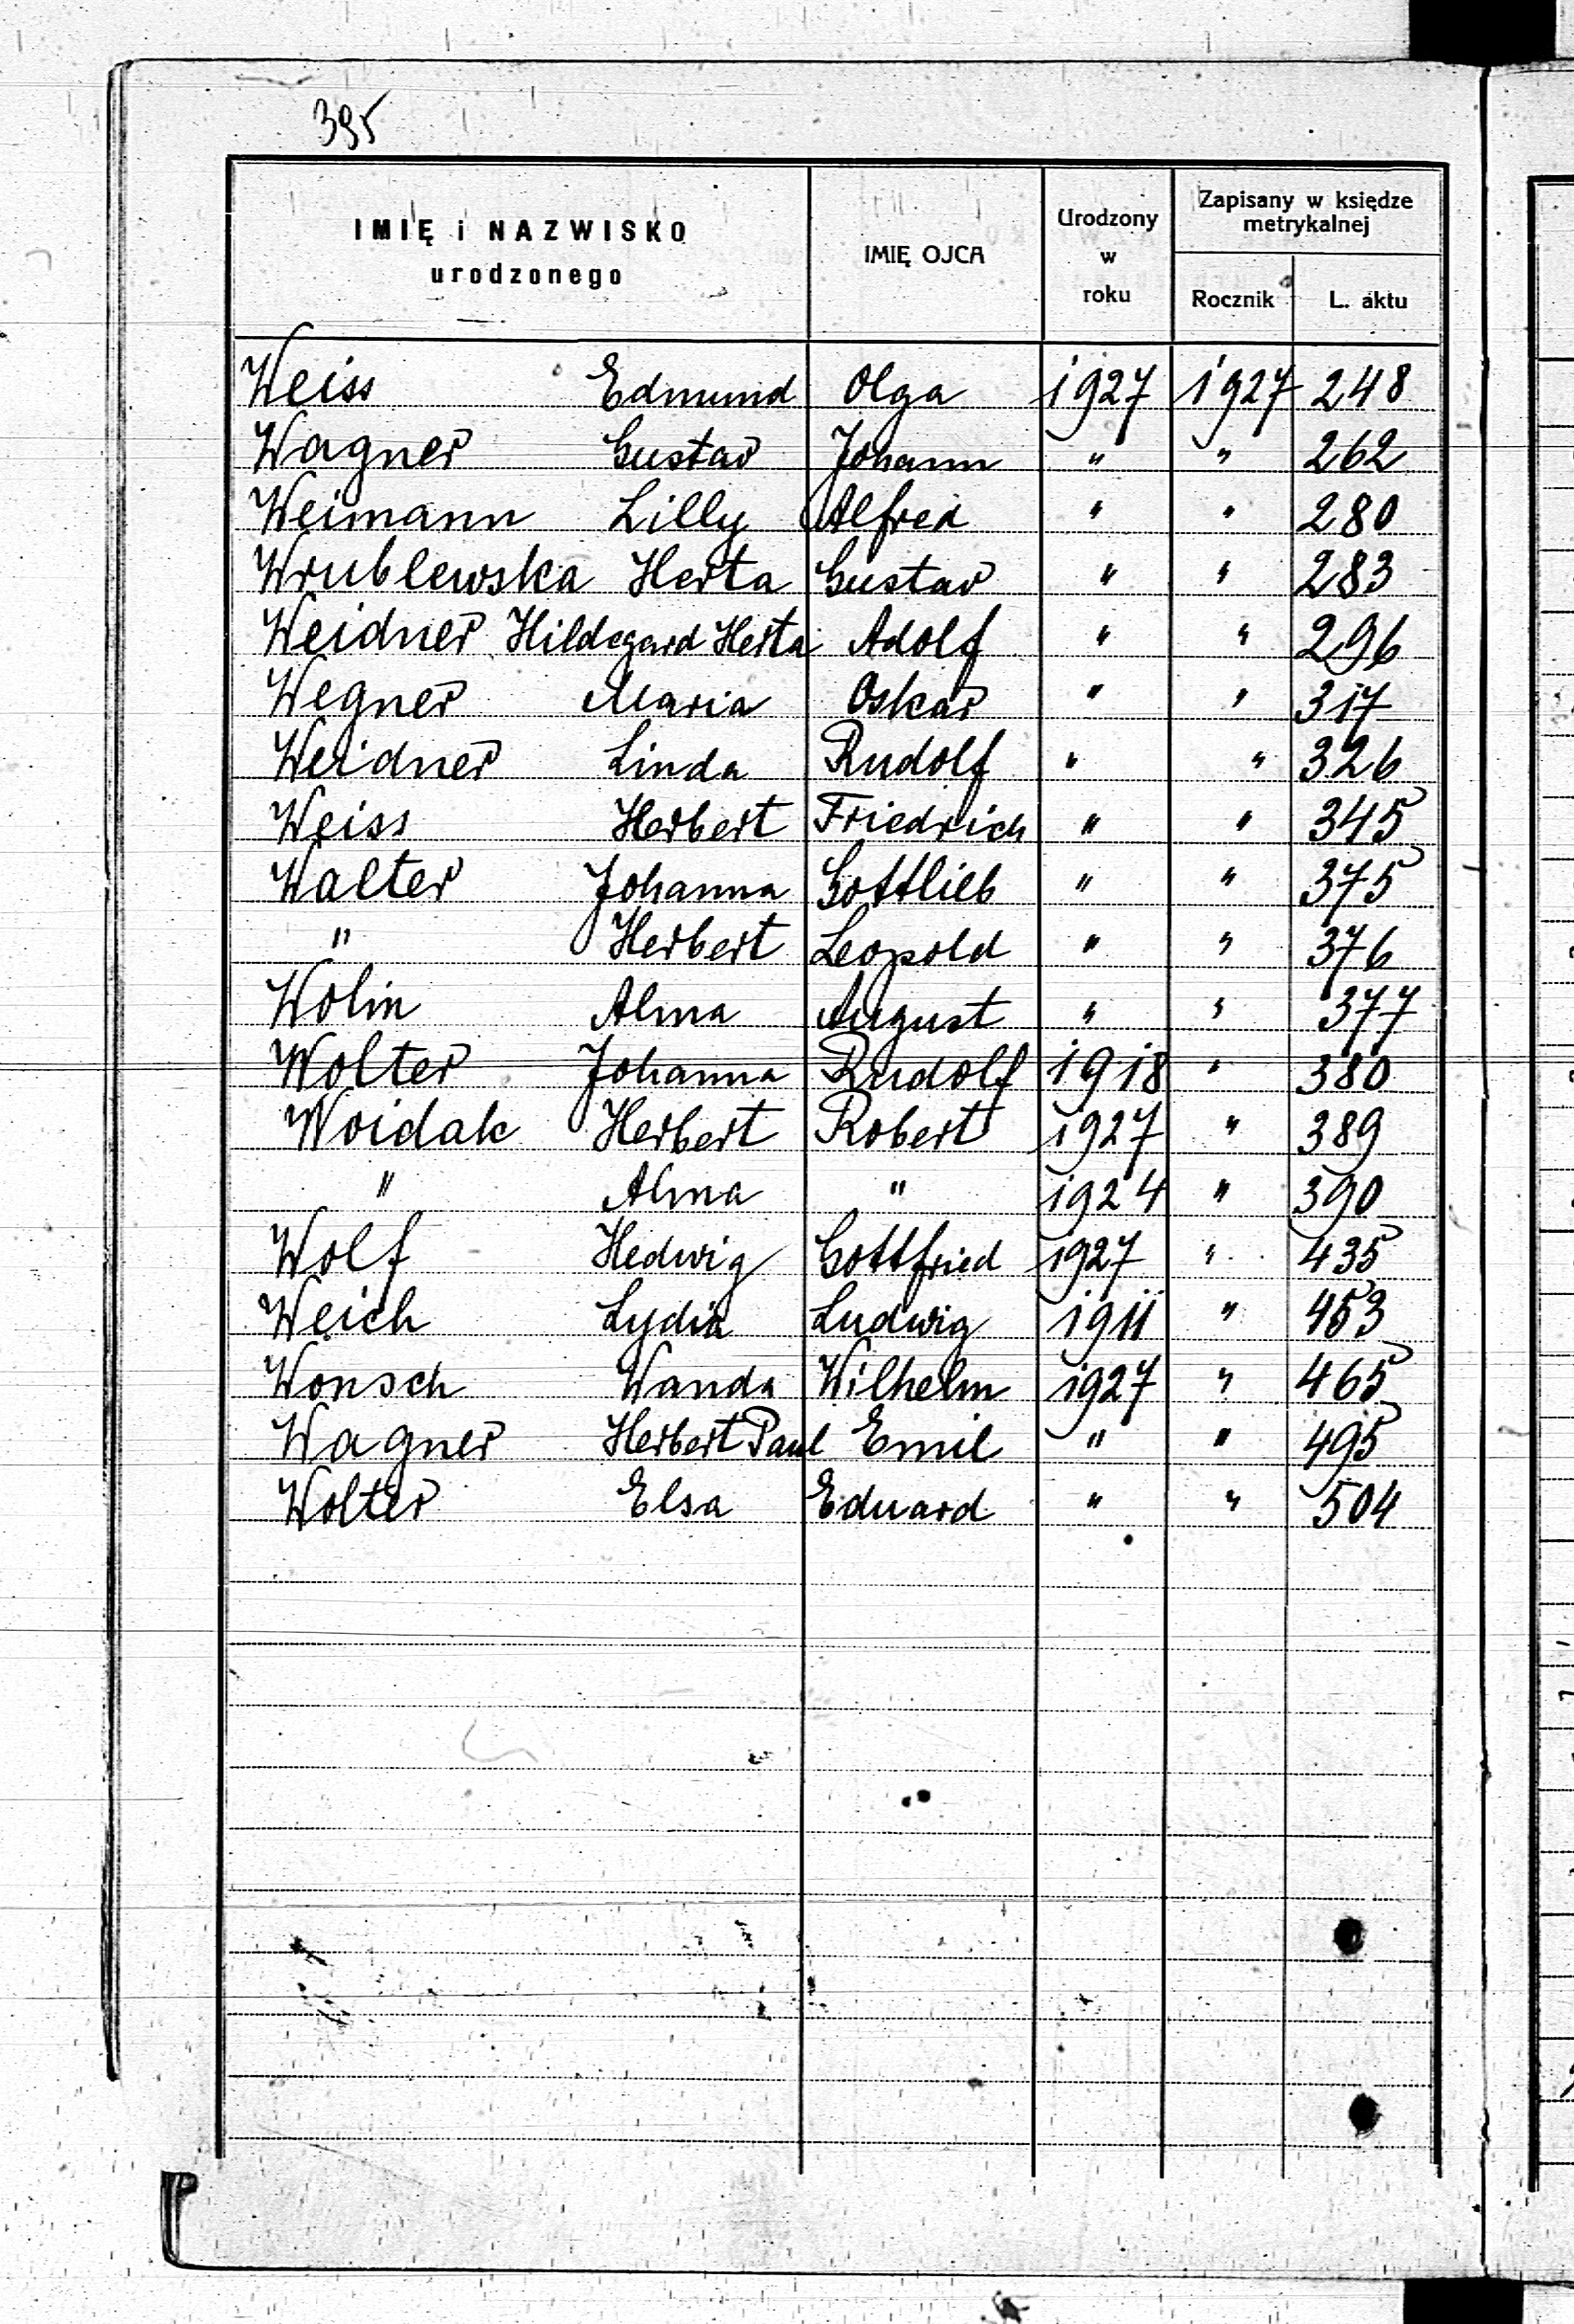 395
IMIĘ i NAZWISKO
urodzonego
IMIĘ OJCA
Urodzony
w
roku
Zapisany w księdze
metrykalnej
Rocznik
L. aktu
Weiss Edmund Olga 1927 1927 248
Wagner Gustav Johann " " 262
Weimann Lilly Alfred " " 280
Wrublewska Herta Gustav " " 283
Weidner Hildegard Herta Adolf " " 296
Wegner Maria Oskar " " 317
Weidner Linda Rudolf " " 326
Weiss Herbert Friedrich " " 345
Walter Johanna Gottlieb " " 375
" Herbert Leopold " " 376
Wolin Alma August " " 377
Wolter Johanna Rudolf 1918 " 380
Woidak Herbert Robert 1927 " 389
" Alma " 1924 " 390
Wolf Hedwig Gottfried 1927 " 435
Weich Lydia Ludwig 1911 " 453
Wonsch Wanda Wilhelm 1927 " 465
Wagner Herbert Paul Emil " " 495
Wolter Elsa Eduard " " 504